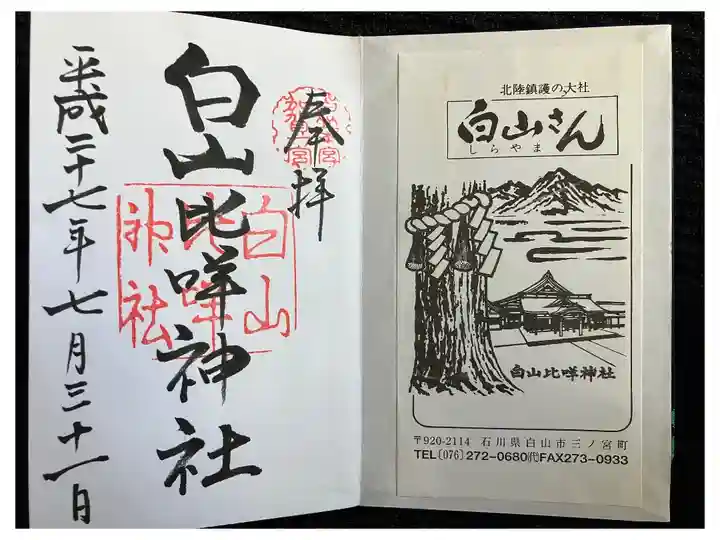 奉拝
白山比咩神社
白山
比咩
神社
平成二十七年七月三十一日
北陸鎮護の大社
白山さん
しらやま
白山比咩神社
〒920-2114 石川県白山市三ノ宮町
TEL〔076〕272-0680㈹FAX273-0933